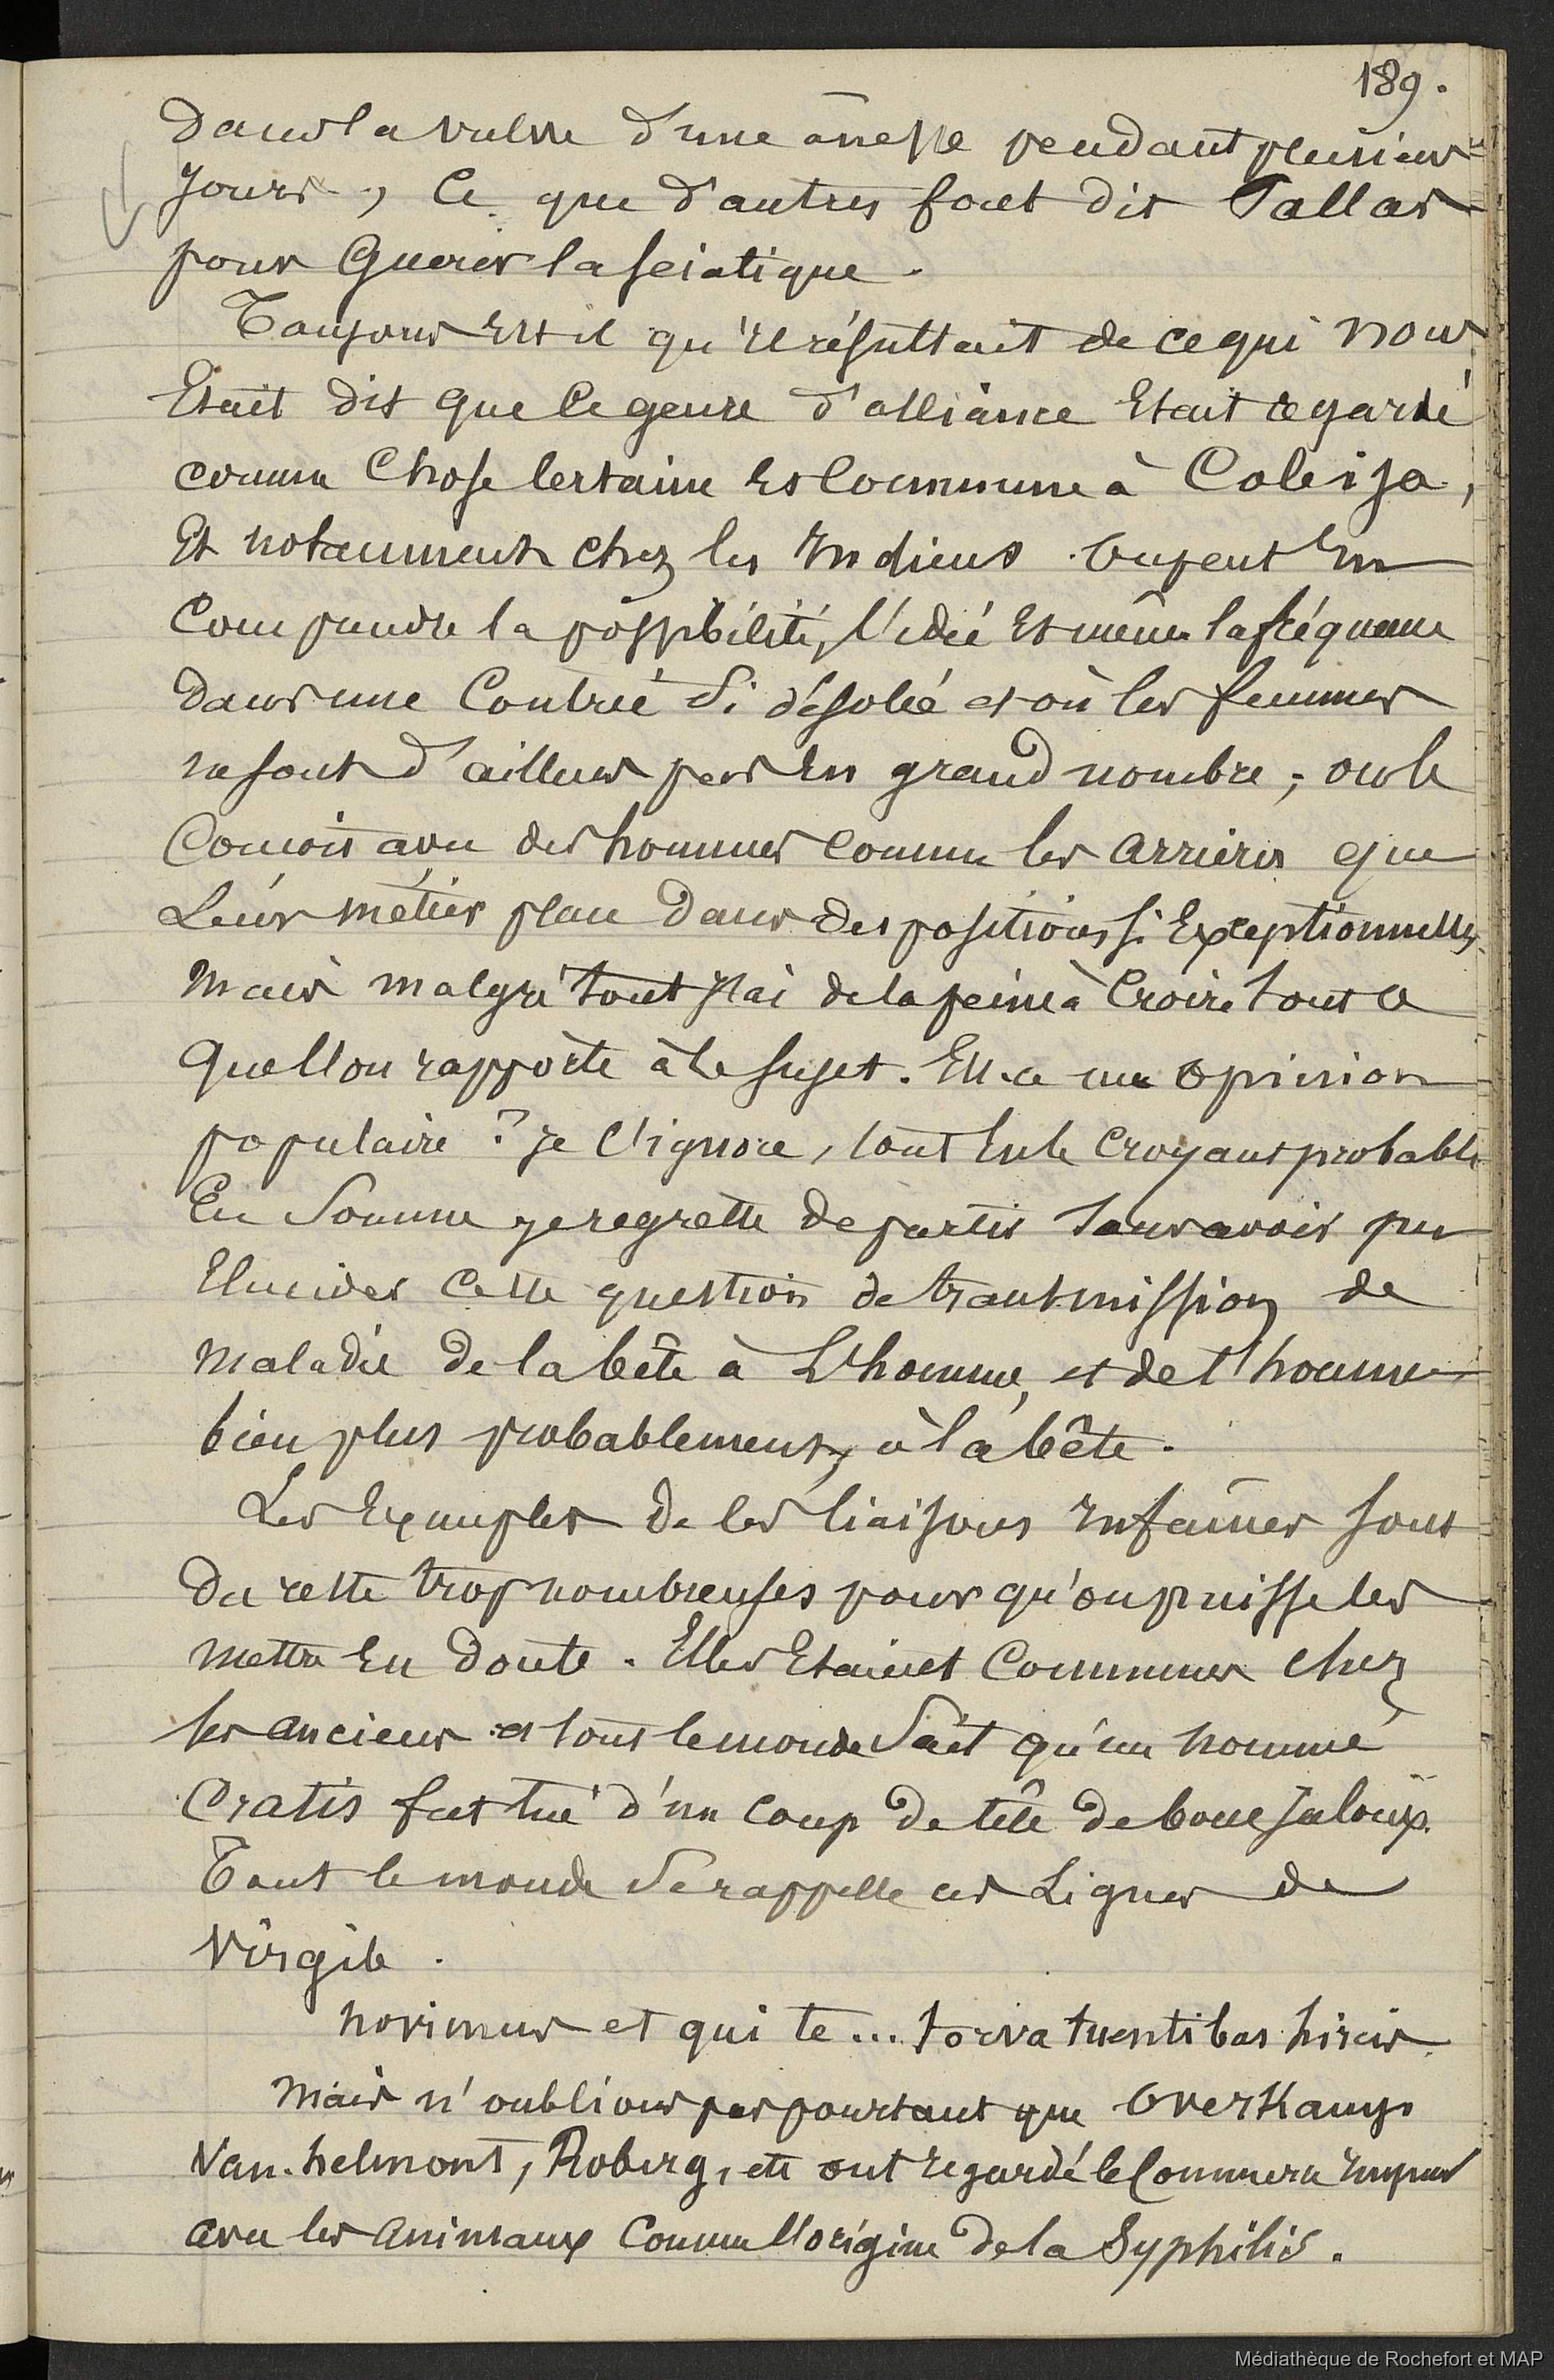 189.
dans la vulve d'une ânesse pendant plusieurs
jours, ce que d'autres font dit Pallas
pour Guerir la sciatique.
Toujours est il qu'il résultait de ce qui nous
Etait dit que ce genre d'alliance Etait regardé
comme Chose certaine et Commune à Cobija,
Et notamment chez les Indiens. On peut En
Comprendre la possibilité, l'idée Et même la fréquence
dans une Contrée Si désolée et où les femmes
ne sont d'ailleurs pas En grand nombre; on le
Conçoit avec des hommes Comme les arrieros que
Leur métier place dans des positions si Exceptionnelles
Mais malgré tout j'ai de la peine à Croire tout ce
que l'on rapporte à ce sujet. Est-ce une opinion
populaire ? je l'ignore, tout En le Croyant probable
En Somme je regrette de partir sans avoir pu
Elucider Cette question de transmission de
Maladie de la bête à L'homme, et de l'homme
bien plus probablement, à la bête.
Les Exemples de ces liaisons Infâmes sont
du reste trop nombreuses pour qu'on puisse les
mettre En doute. Elles Etaient Communes chez
les anciens et tout le monde Sait qu'un nommé
Cratis fut tué d'un coup de tête de bouc jaloux.
Tout le monde Se rappelle ces Lignes de
Virgile.
novimus et qui te... torva tuentibas hircis
Mais n'oublions pas pourtant que Overkamp
Van-helmont, Roberg, etc ont regardé le Commerce Impur
avec les animaux Comme l'origine de la Syphilis.
Médiathèque de Rochefort et MAP